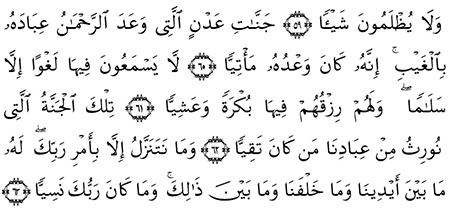 وَلَا يُظْلَمُونَ شَيْـًٔا ﴿٥٩﴾ جَنَّـٰتِ عَدْنٍ ٱلَّتِى وَعَدَ ٱلرَّحْمَـٰنُ عِبَادَهُۥ
بِٱلْغَيْبِ ۚ إِنَّهُۥ كَانَ وَعْدُهُۥ مَأْتِيًّا ﴿٦٠﴾ لَّا يَسْمَعُونَ فِيهَا لَغْوًا إِلَّا
سَلَـٰمًا ۖ وَلَهُمْ رِزْقُهُمْ فِيهَا بُكْرَةً وَعَشِيًّا ﴿٦١﴾ تِلْكَ ٱلْجَنَّةُ ٱلَّتِى
نُورِثُ مِنْ عِبَادِنَا مَن كَانَ تَقِيًّا ﴿٦٢﴾ وَمَا نَتَنَزَّلُ إِلَّا بِأَمْرِ رَبِّكَ ۖ لَهُۥ
مَا بَيْنَ أَيْدِينَا وَمَا خَلْفَنَا وَمَا بَيْنَ ذَٰلِكَ ۚ وَمَا كَانَ رَبُّكَ نَسِيًّا ﴿٦٣﴾